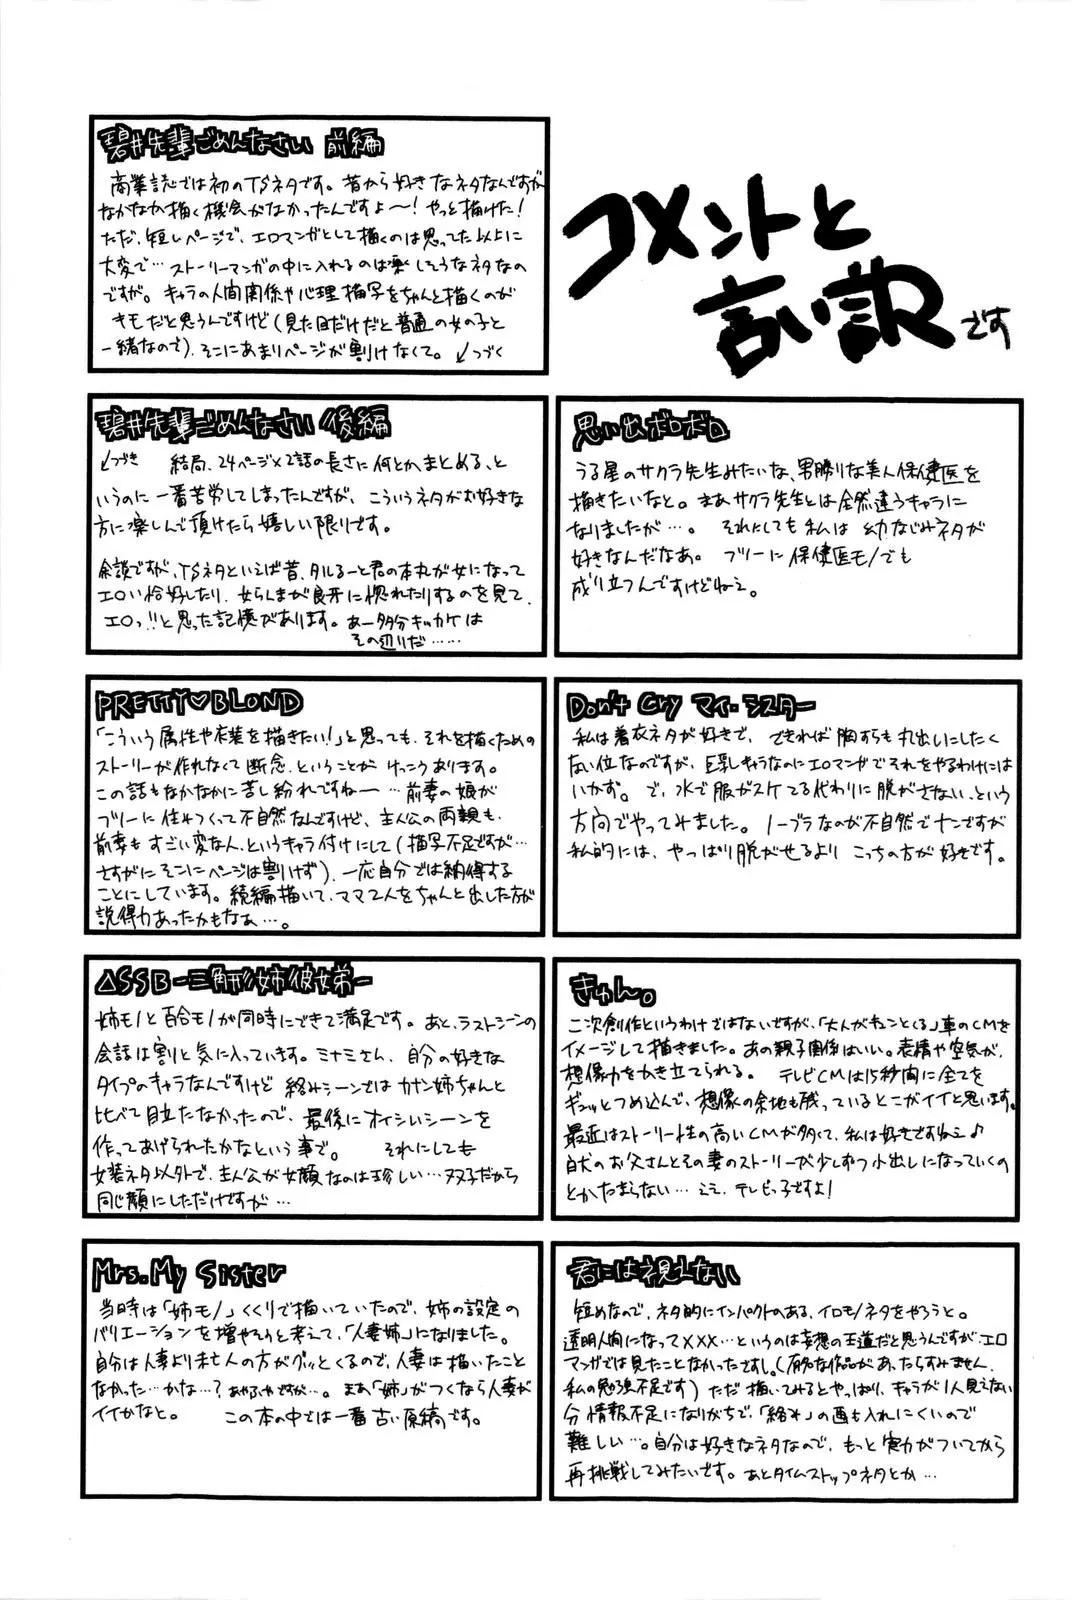 コメントと
言い訳です
碧井先輩ごめんなさい 前編
商業誌では初のTSネタです。昔から好きなネタなんですが
なかなか描く機会がなかったんですよ〜!やっと描けた!
ただ、短いページで、エロマンガとして描くのは思ってた以上に
大変で…ストーリーマンガの中に入れるのは楽しそうなネタなの
ですが。キャラの人間関係や心理描写をちゃんと描くのが
キモだと思うんですけど(見た目だけだと普通の女の子と
一緒なので)、そこにあまりページが割けなくて。↙つづく
碧井先輩ごめんなさい 後編
↙つづき 結局、24ページ×2話の長さに何とかまとめる、と
いうのに一番苦労してしまったんですが、こういうネタがお好きな
方に楽しんで頂けたら嬉しい限りです。
余談ですが、TSネタといえば昔、タルるート君の本丸が女になって
エロい恰好したり、女らんまが良牙に惚れたりするのを見て、
エロっ!!と思った記憶があります。あー多分キッカケは
その辺りだ……
思い出ボロボロ
うる星のサクラ先生みたいな、男勝りな美人保健医を
描きたいなと。まあサクラ先生とは全然違うキャラに
なりましたが…。それにしても私は幼なじみネタが
好きなんだなあ。フツーに保健医モノでも
成り立つんですけどねェ。
PRETTY♡BLOND
「こういう属性や衣装を描きたい!」と思っても、それを描くための
ストーリーが作れなくて断念、ということがけっこうあります。
この話もなかなかに苦し紛れですねー…前妻の娘が
フツーに住みつくって不自然なんですけど、主人公の両親も、
前妻もすごい変な人、というキャラ付けにして(描写不足ですが…
さすがにそこにページは割けず)、一応自分では納得する
ことにしています。続編描いて、ママ2人をちゃんと出した方が
説得力あったかもなぁ…。
Don't Cry マイ・シスター
私は着衣ネタが好きで、できれば胸すらも丸出しにしたく
ない位なのですが、巨乳キャラなのにエロマンガでそれをやるわけには
いかず。で、水で服がスケてる代わりに脱がさない、という
方向でやってみました。ノーブラなのが不自然でナンですが
私的には、やっぱり脱がせるよりこっちの方が好きです。
△SSB-三角形姉彼弟-
姉モノと百合モノが同時にできて満足です。あと、ラストシーンの
会話は割と気に入っています。ミナミさん、自分の好きな
タイプのキャラなんですけど絡みシーンではカナン姉ちゃんと
比べて目立たなかったので、最後にオイシいシーンを
作ってあげられたかなという事で。それにしても
女装ネタ以外で、主人公が女顔なのは珍しい…双子だから
同じ顔にしただけですが…
きゅん。
二次創作というわけではないですが、「大人がキュンとくる」車のCMを
イメージして描きました。あの親子関係はいい。表情や空気が、
想像力をかき立てられる。テレビCMは15秒間に全てを
ギュッとつめ込んで、想像の余地も残っているとこがイイと思います。
最近はストーリー性の高いCMが多くて、私は好きですねェ♪
白犬のお父さんとその妻のストーリーが少しずつ小出しになっていくの
とかたまらない…ええ、テレビっ子ですよ!
Mrs. My Sister
当時は「姉モノ」くくりで描いていたので、姉の設定の
バリエーションを増やそうと考えて、「人妻姉」になりました。
自分は人妻より未亡人の方がグッとくるので、人妻は描いたこと
なかった…かな…?あやふやですが…。まあ「姉」がつくなら人妻が
イイかなと。この本の中では一番古い原稿です。
君には視えない
短めなので、ネタ的にインパクトのある、イロモノネタをやろうと。
透明人間になって×××…というのは妄想の王道だと思うんですが、エロ
マンガでは見たことなかったですし。(有名な作品があったらすみません、
私の勉強不足です)ただ描いてみるとやっぱり、キャラが1人見えない
分情報不足になりがちで、「絡み」の画も入れにくいので
難しい…。自分は好きなネタなので、もっと実力がついてから
再挑戦してみたいです。あとタイムストップネタとか…